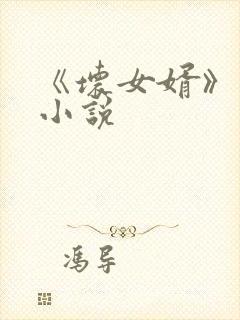 《壞女婿》
小說
馮导